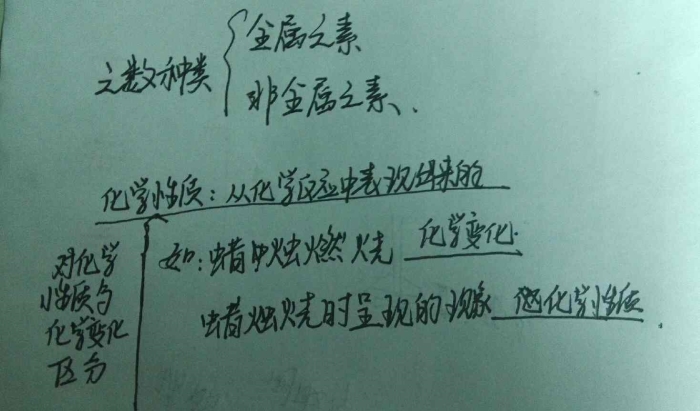 金属之素
之数种类
非金属之素、.
化学性质：从化学反应中表现出来的
对化学
性质与
化学变化
区分
如：蜡烛燃烧 化学变化.
蜡烛烧时呈现的现象 化学性质.